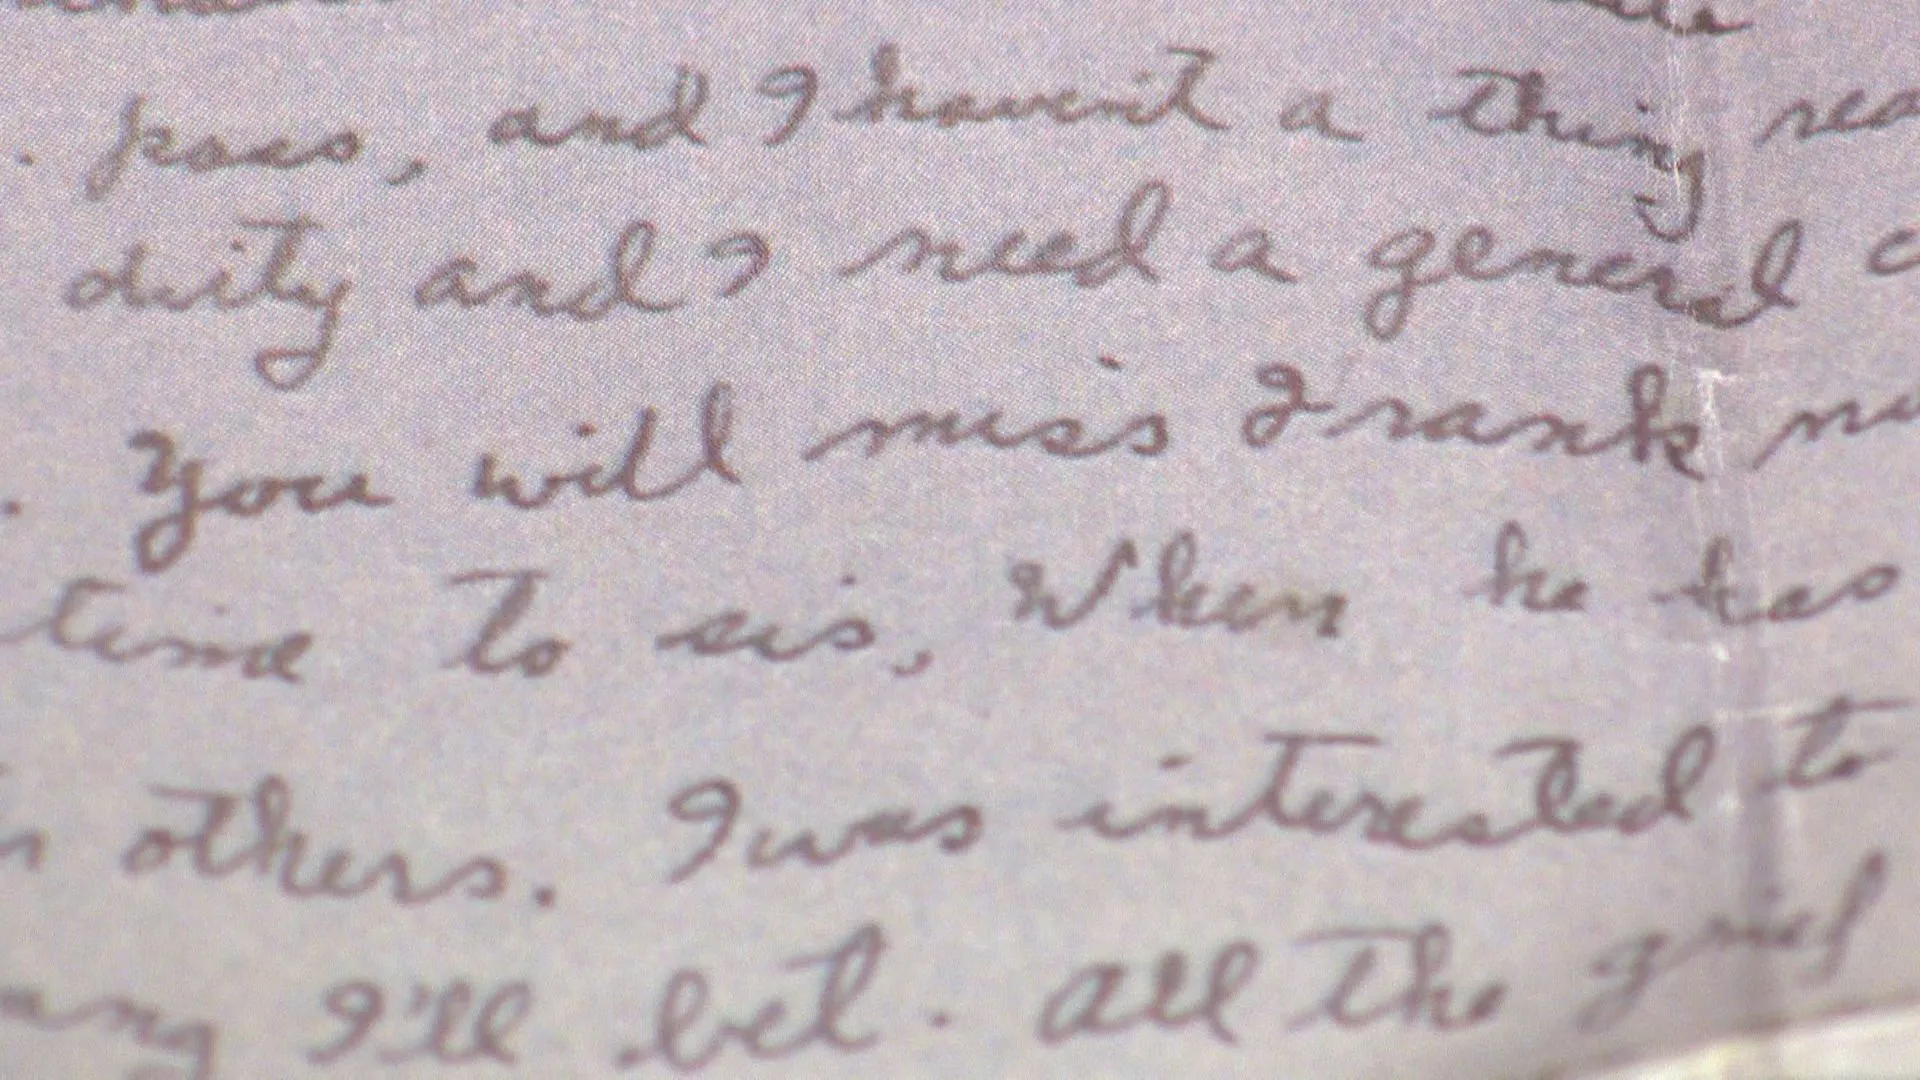 pass, and I haven't a thing
dirty and I need a general
. You will miss Frank
time to sis, When he has
others. I was interested to
I'll bet. All the